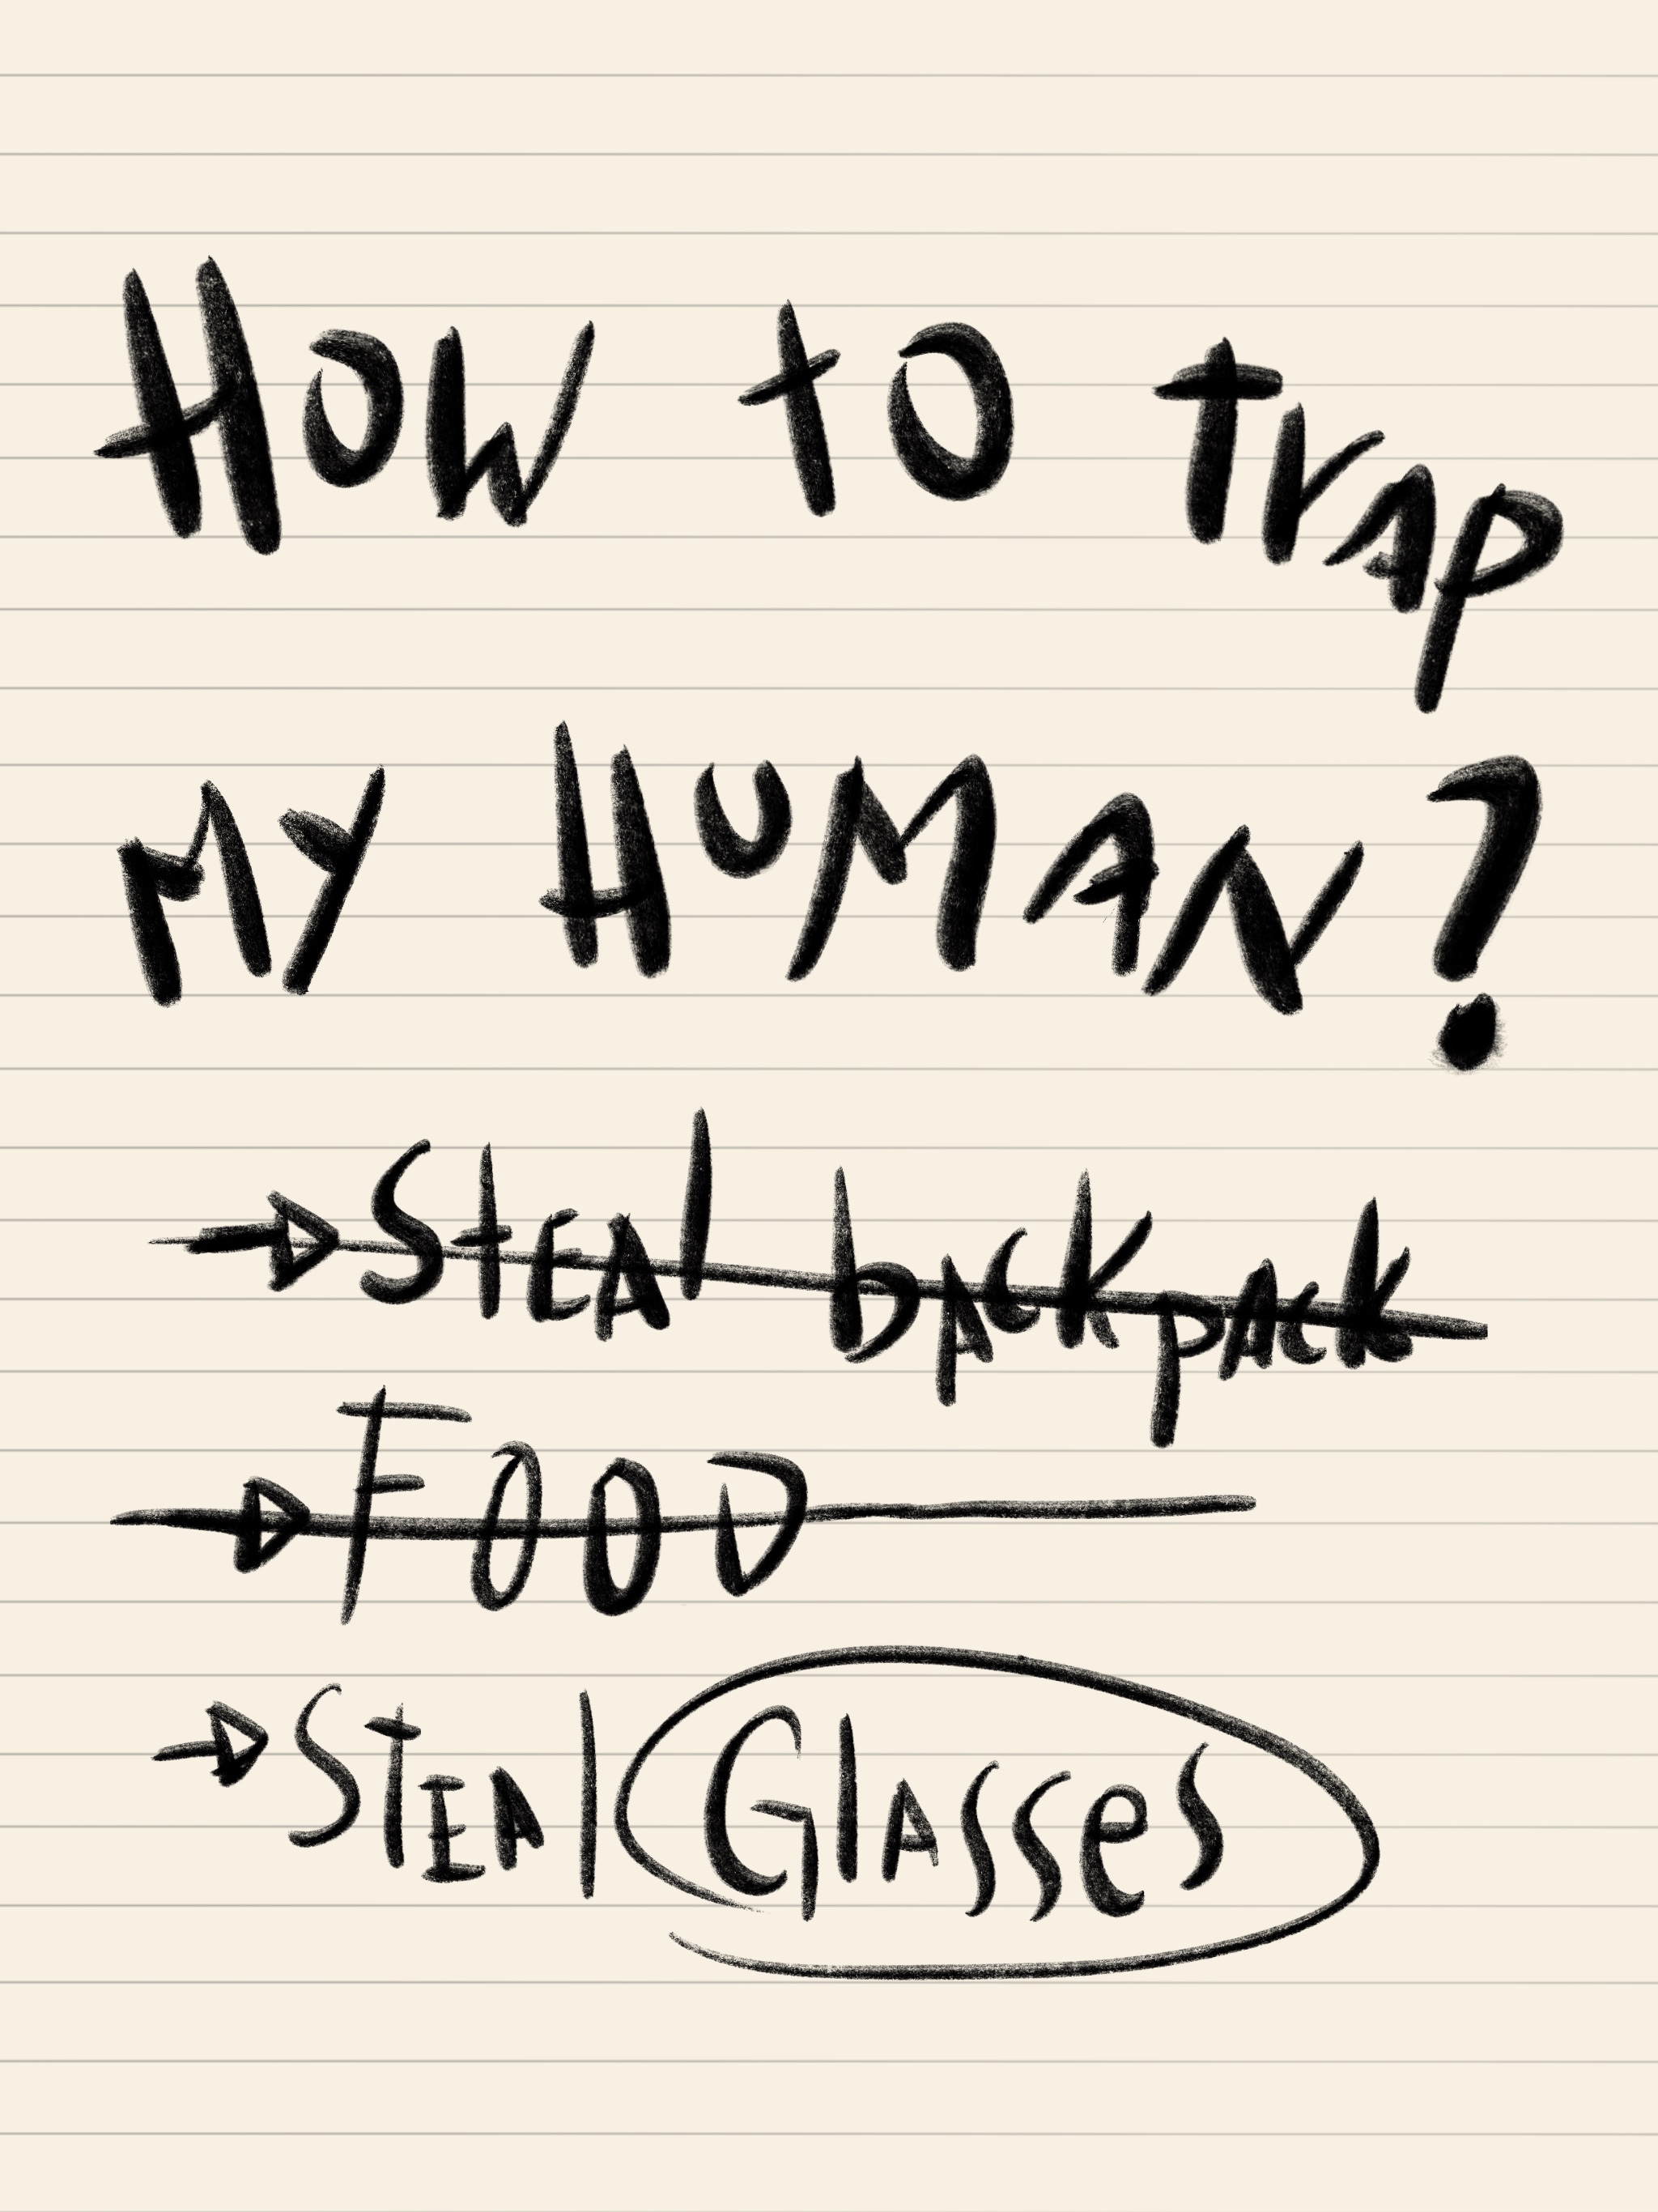 How to trap
my human?
→ Steal backpack
→ Food
→ Steal Glasses